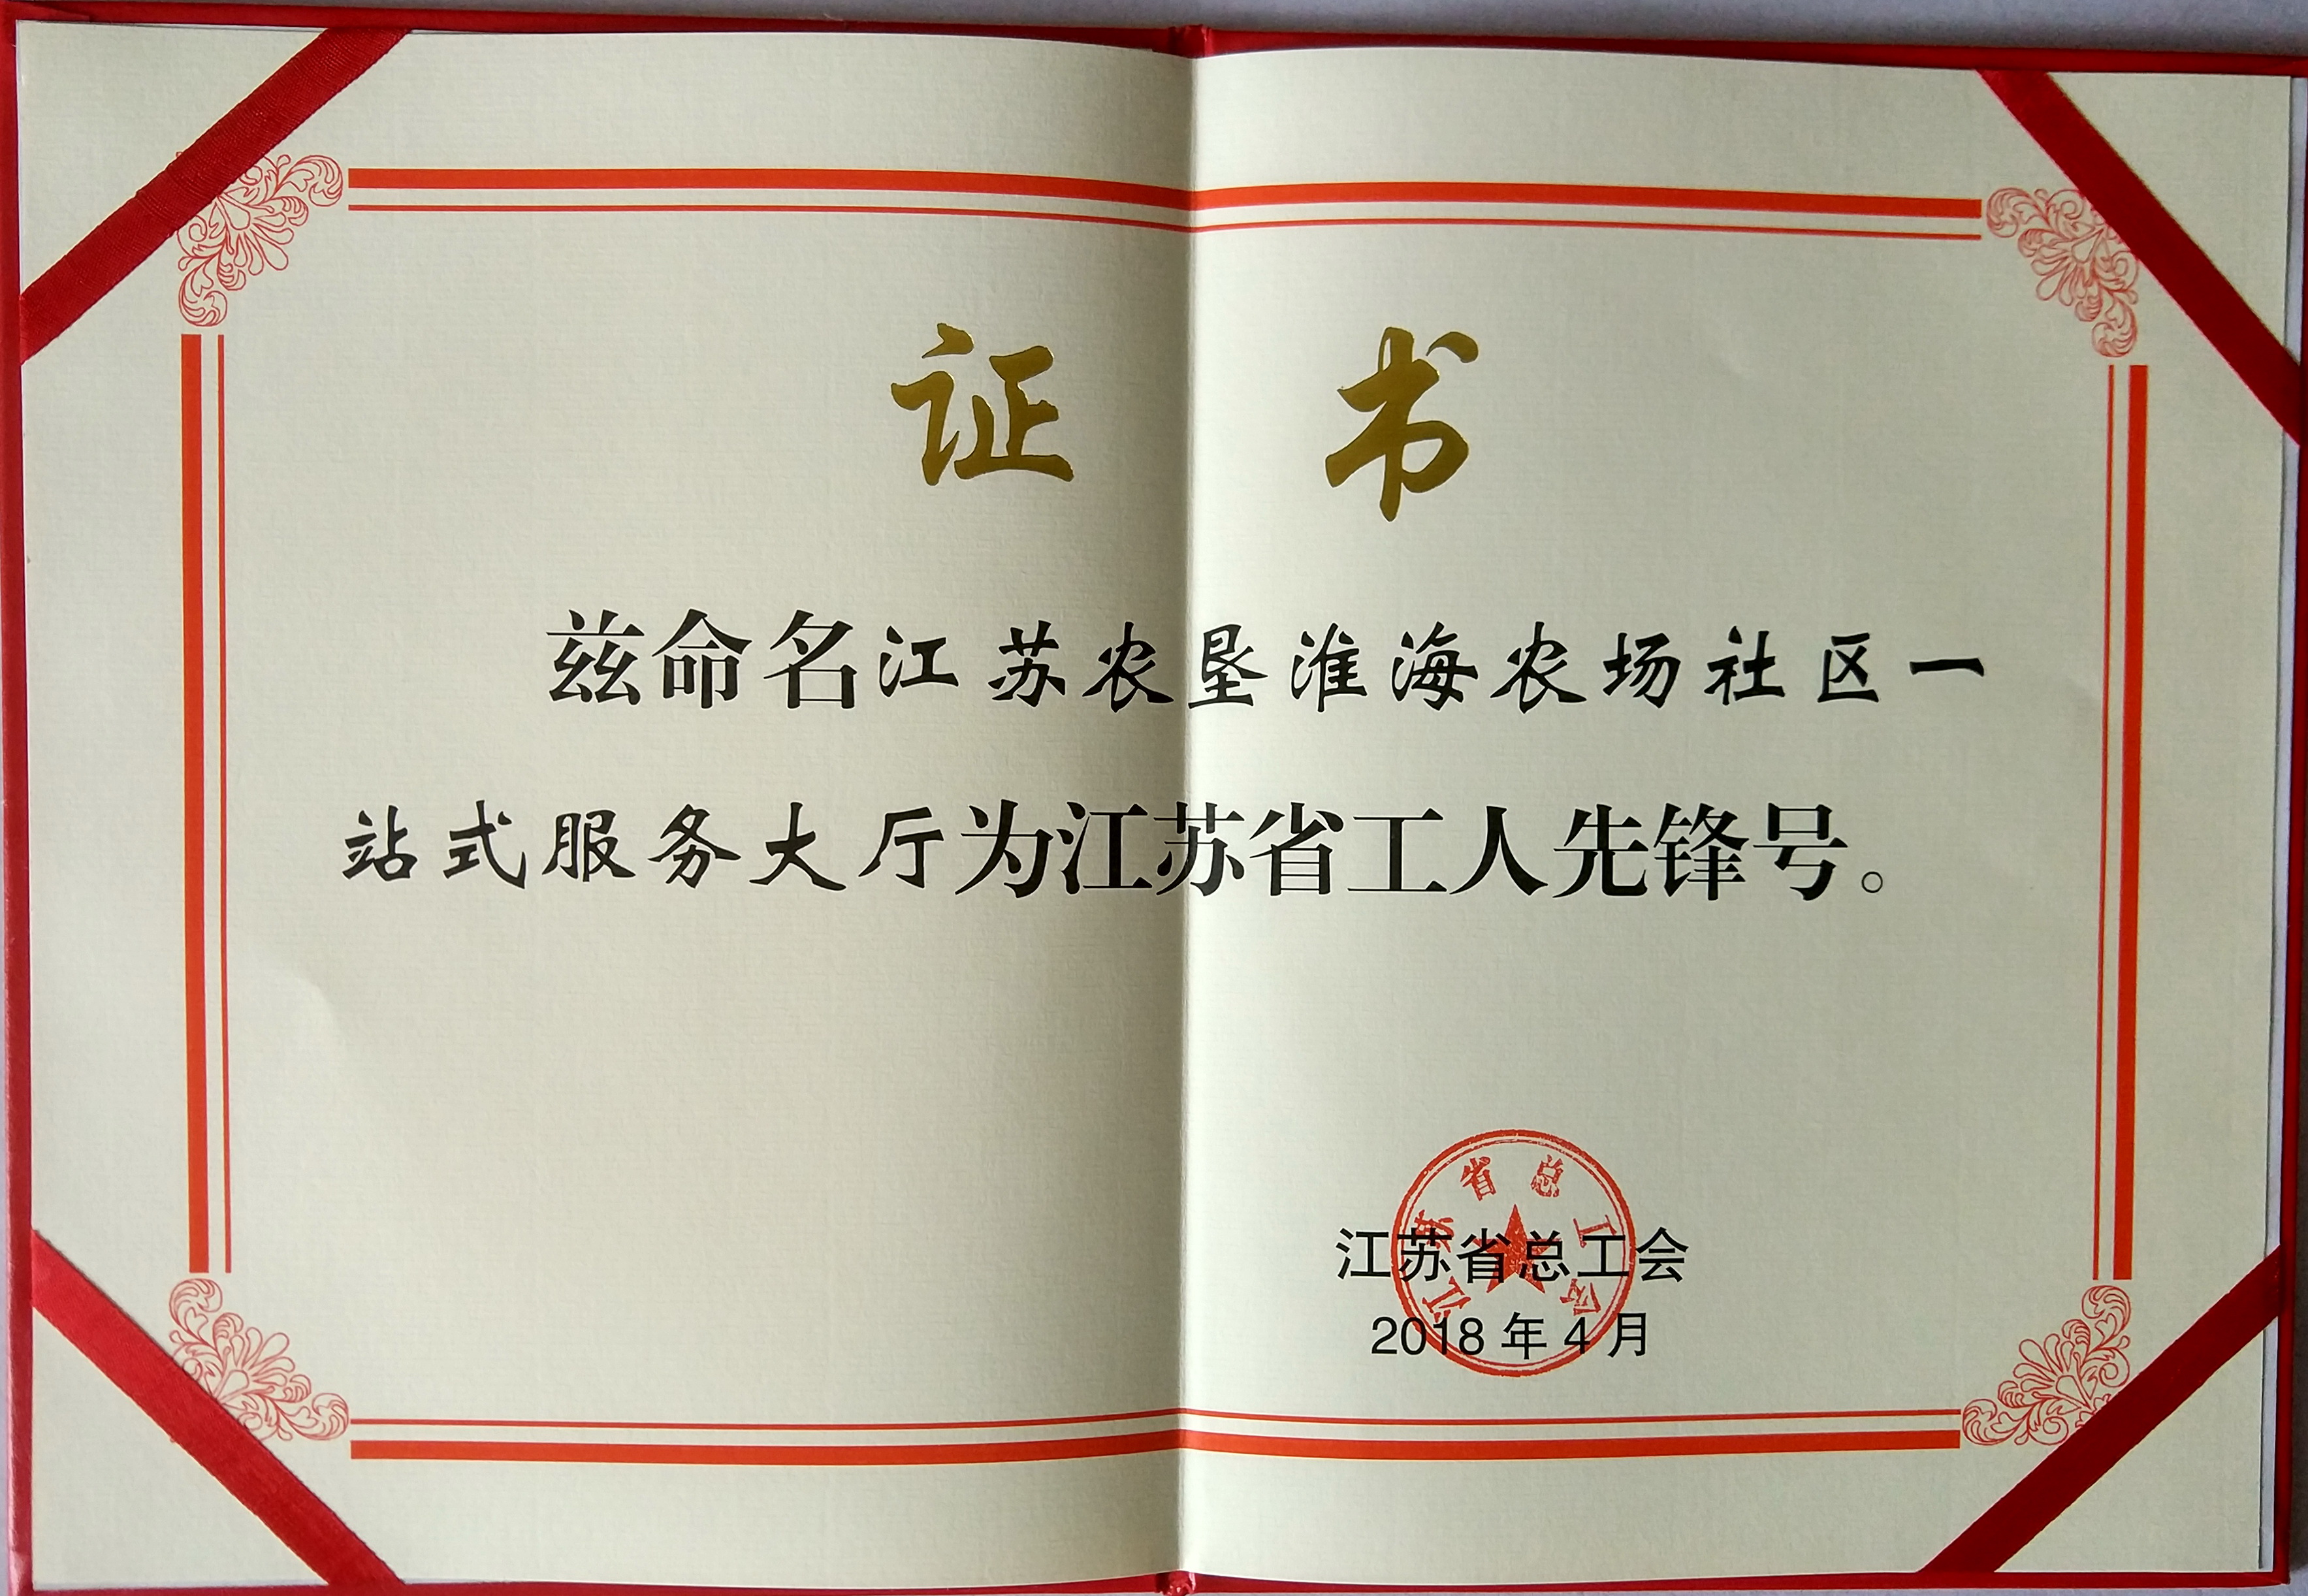 证书
兹命名江苏农垦淮海农场社区一
站式服务大厅为江苏省工人先锋号。
江苏省总工会
江苏省总工会
2018年4月